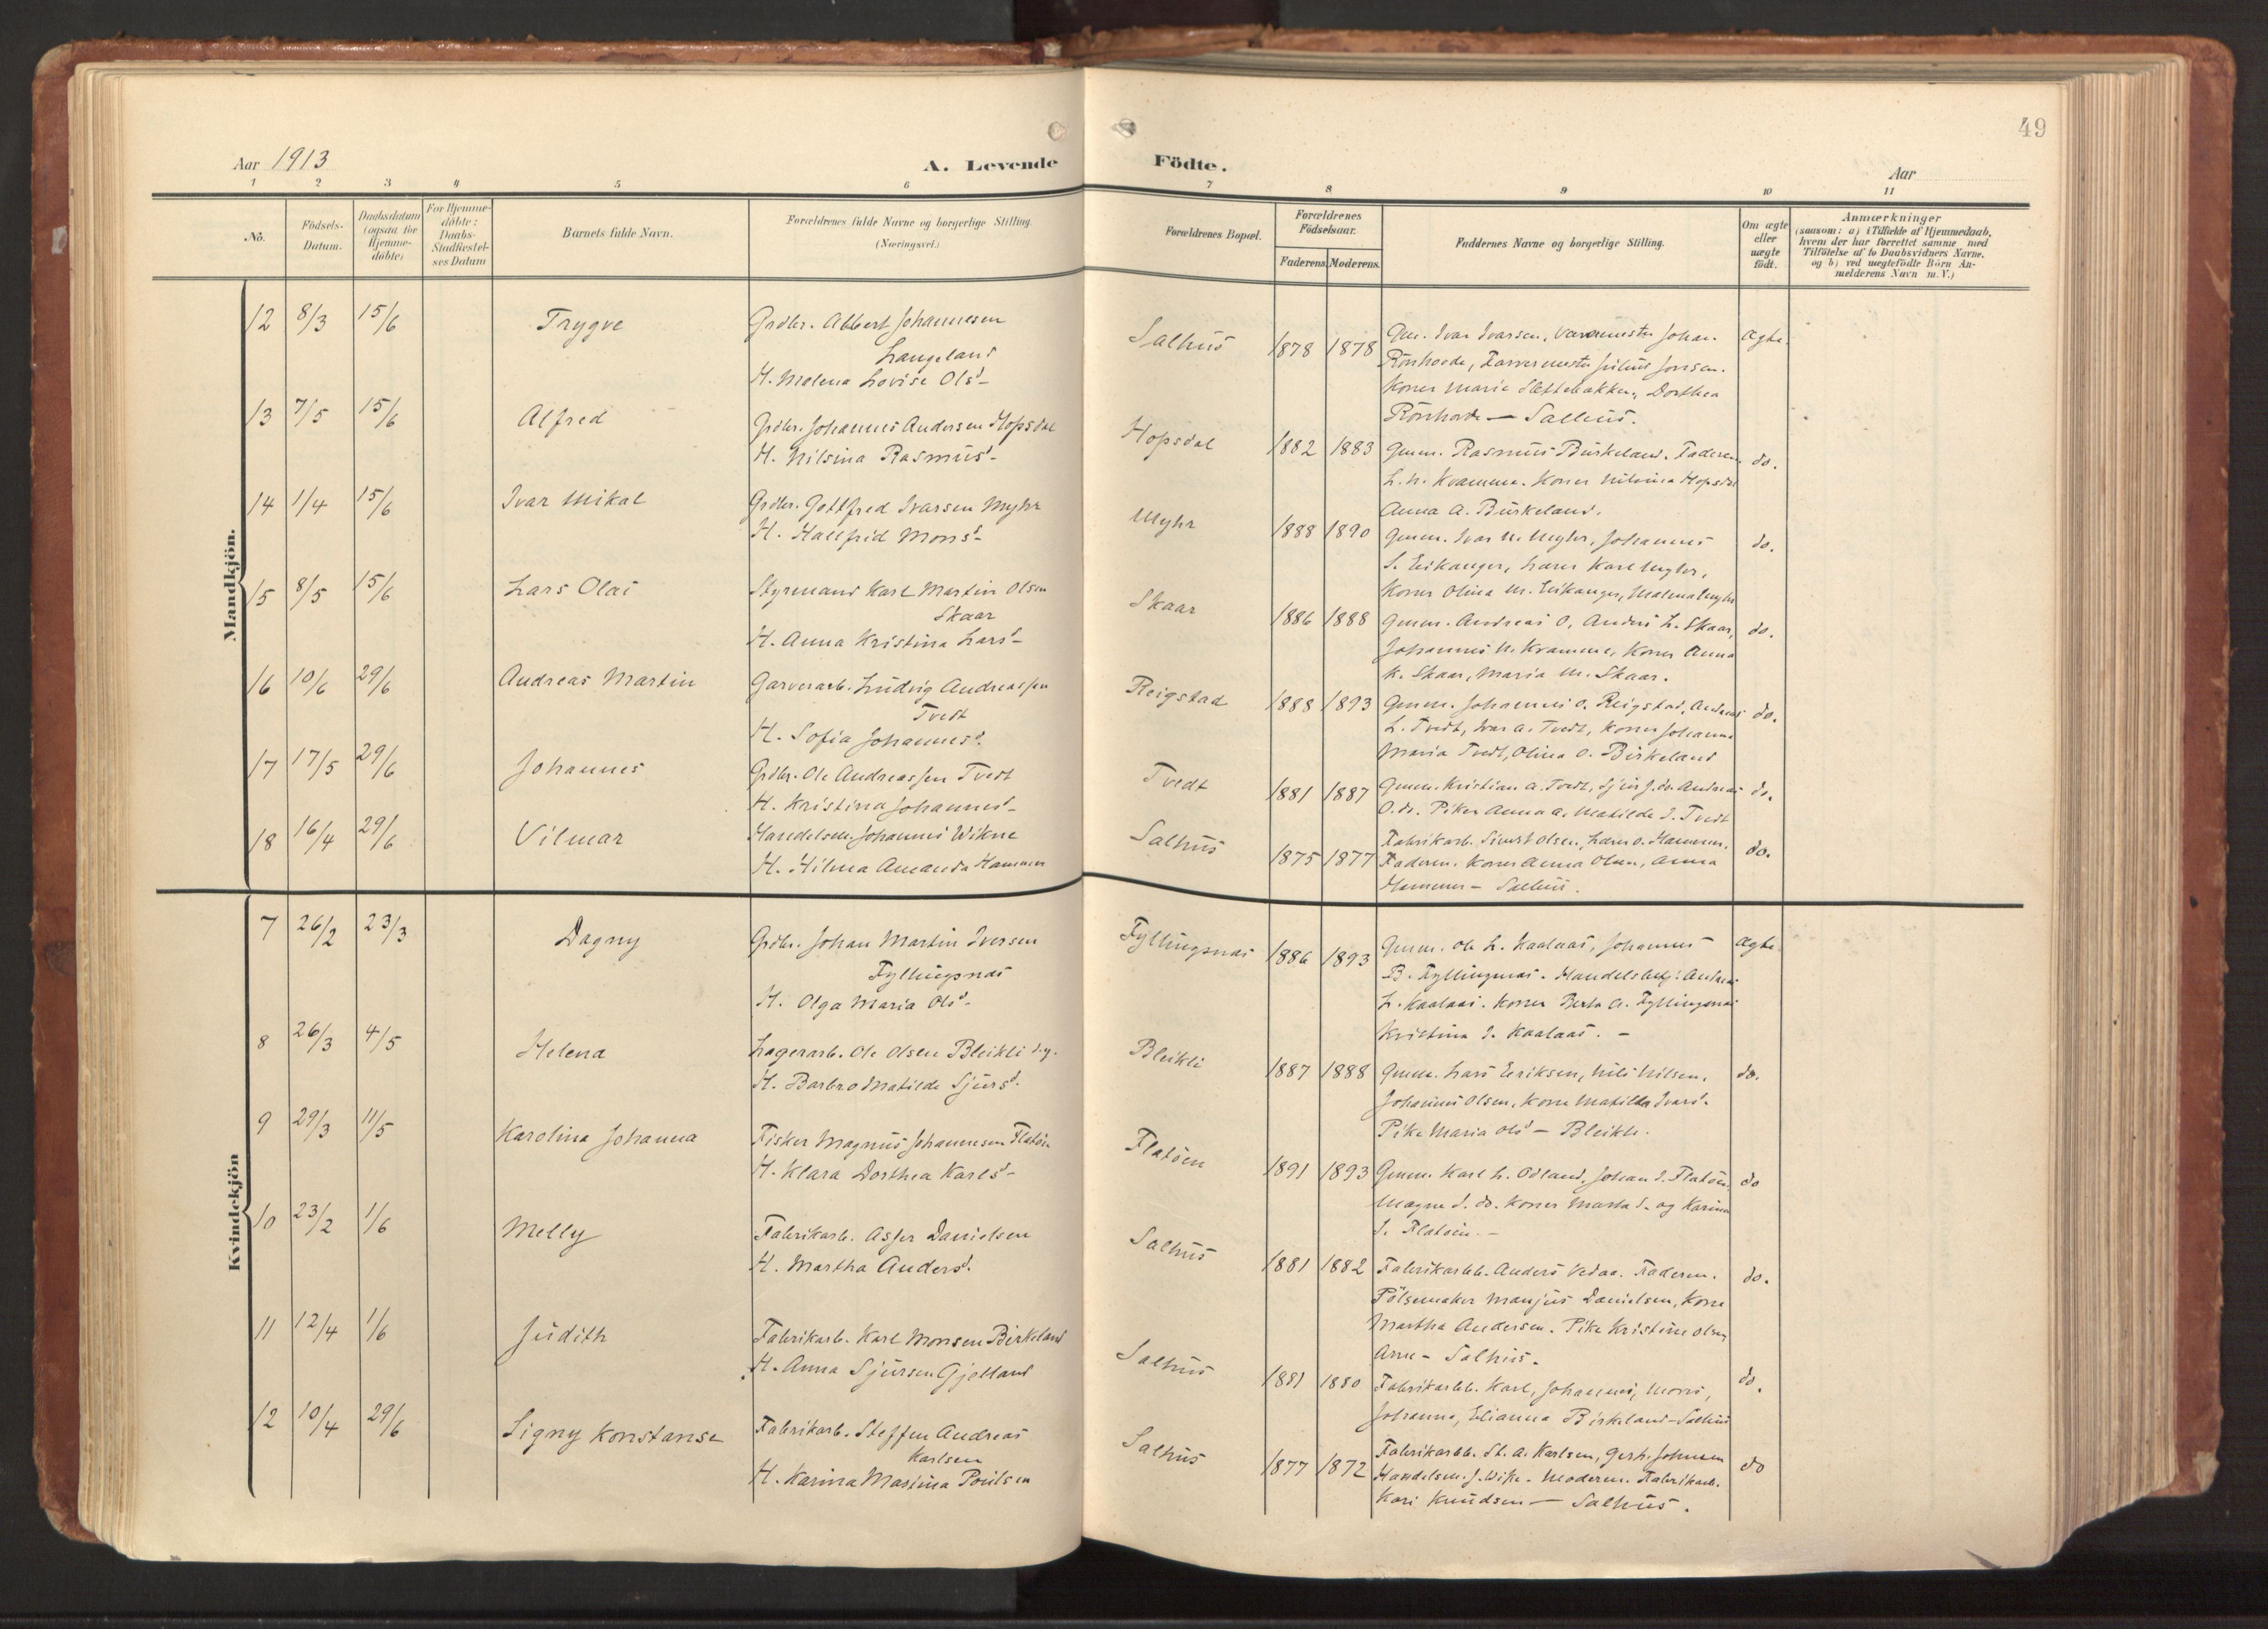 49
Aar 1913
A. Levende
Födte.
Aar
1 2 3 4 5 6 7 8 9 10 11
No.
Födsels-
Datum.
Daabsdatum
(ogsaa for
Hjemme-
döbte)
For Hjemme-
döbte:
Daabs-
Stadfæstel-
ses Datum
Barnets fulde Navn.
Forældrenes fulde Navne og borgerlige Stilling.
(Næringsvei.)
Forældrenes Bopæl.
Forældrenes
Födselsaar.
Faderens. Moderens.
Faddernes Navne og borgerlige Stilling.
Om ægte
eller
uægte
födt.
Anmærkninger
(saasom: a) i Tilfælde af Hjemmedaab,
hvem der har forrettet samme med
Tilföielse af to Daabsvidners Navne,
og b) ved uægtefödte Börn An-
melderens Navn m. V.)
Mandkjön.
12 8/3 15/6 Trygve Grdbr. Albert Johannesen
Langeland
H. Molena Lovise Olsd-
Salhus 1878 1878 Gm. Ivar Ivarsen, Johan
Rörhovde, Farvermester Julius Jonsen.
Koner Marie Slettebakken, Dorthea
Rörhovde - Salhus.
Ægte.
13 7/5 15/6 Alfred Grdbr. Johannes Andersen Hopsdal
H. Nilsina Rasmusd-
Hopsdal 1882 1883 Gmm. Rasmus Birkeland. Faderen.
L. N. Kvamme. Koner Nilsina Hopsdal
Anna A. Birkeland.
do.
14 1/4 15/6 Ivar Mikal Grdbr. Gottfred Ivarsen Myhr
H. Hallfrid Monsd-
Myhr 1888 1890 Gmm. Ivar N. Myhr, Johannes
S. Eikanger, Lærer Karl Myhr,
Koner Olina M. Eikanger, Malena Myhr
do.
15 8/5 15/6 Lars Olai Styrmand Karl Martin Olsen
Skaar
H. Anna Kristina Larsd-
Skaar 1886 1888 Gmm. Andreas O, Anders L. Skaar,
Johannes N. Kvamme, Koner Anna
K. Skaar, Maria M. Skaar.
do.
16 10/6 29/6 Andreas Martin Garverarb. Ludvig Andreassen
Tvedt
H. Sofia Johannesd.
Reigstad 1888 1893 Gmm. Johannes O. Reigstad, Andreas
L. Tvedt, Ivar A. Tvedt, Koner Johanna
Maria Tvedt, Olina O. Birkeland
do.
17 17/5 29/6 Johannes Grdbr. Ole Andreassen Tvedt
H. Kristina Johannesd-
Tvedt 1881 1887 Gmm. Kristian A. Tvedt, Sjur J. do. Andreas
O. do. Piker Anna A. Matilde J. Tvedt
do.
18 16/4 29/6 Vilmar Handelsm. Johannes Wikne
H. Hilma Amanda Hammer
Salhus 1875 1877 Fabrikarb. Sivert Olsen, Lærer O. Hammer,
Faderen. Koner Anna Olsen, Anna
Hammer - Salhus.
do.
Kvindekjön
7 26/2 23/3 Dagny Grdbr. Johan Martin Iversen
Fyllingsnæs
H. Olga Maria Olsd-
Fyllingsnæs 1886 1893 Gmm. Ole L. Kaalaas, Johannes
B. Fyllingsnæs. Handelsbetj. Andreas
L. Kaalaas. Koner Berta A. Fyllingsnæs
Kristina J. Kaalaas. -
Ægte
8 26/3 4/5 Helena Lagerarb. Ole Olsen Bleikli d.y.
H. Barbro Matilde Sjursd.
Bleikli 1887 1888 Gmm. Lars Eriksen, Nils Nilsen,
Johannes Olsen, Kone Matilda Ivarsd.
Pike Maria Olsd - Bleikli.
do.
9 29/3 11/5 Karolina Johanna Fisker Magnus Johannesen Flatöen
H. Klara Dorthea Karlsd-
Flatöen 1891 1893 Gmm. Karl L. Odland, Johan J. Flatöen,
Magne J. do. Koner Marta J. og Karina
J. Flatöen. -
do
10 23/2 1/6 Melly Fabrikarb. Asser Danielsen
H. Martha Andersd.
Salhus 1881 1882 Fabrikarbb. Anders Vedaa. Faderen.
Pölsemaker Manjus Danielsen, Kone
Martha Andersen. Pike Kristine Olsen
Arne - Salhus.
do.
11 12/4 1/6 Judith Fabrikarb. Karl Monsen Birkeland
H. Anna Sjursen Gjelland
Salhus 1881 1880 Fabrikarbb. Karl, Johannes, Mons,
Johanna, Elianna Birkeland - Salhus
do.
12 10/4 29/6 Signy Konstanse Fabrikarb. Steffen Andreas
Karlsen
H. Karina Martina Poulsen
Salhus 1877 1872 Fabrikarbb. St. A. Karlsen, Gerh. Johnsen
Handelsm. J. Wikne. Moderen. Fabrikarb.
Kari Knudsen - Salhus.
do